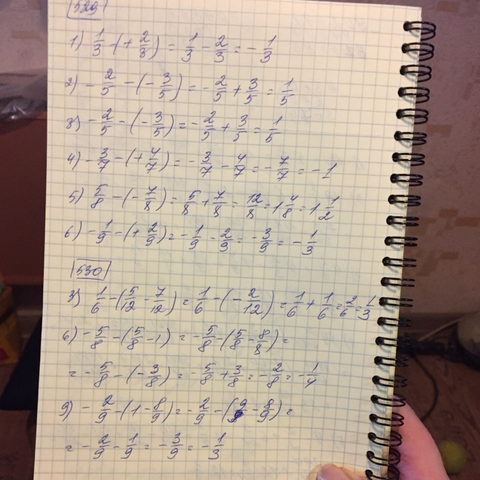 529
1) 1/3 - (+ 2/3) = 1/3 - 2/3 = - 1/3
2) - 2/5 - (- 3/5) = - 2/5 + 3/5 = 1/5
3) - 2/5 - (- 3/5) = - 2/5 + 3/5 = 1/5
4) - 3/7 - (+ 4/7) = - 3/7 - 4/7 = - 7/7 = - 1
5) 5/8 - (- 7/8) = 5/8 + 7/8 = 12/8 = 1 4/8 = 1 1/2
6) - 1/9 - (+ 2/9) = - 1/9 - 2/9 = - 3/9 = - 1/3
530
3) 1/6 - (5/12 - 7/12) = 1/6 - (- 2/12) = 1/6 + 1/6 = 2/6 = 1/3
6) - 5/8 - (5/8 - 1) = - 5/8 - (5/8 - 8/8) =
= - 5/8 - (- 3/8) = - 5/8 + 3/8 = - 2/8 = - 1/4
9) - 2/9 - (1 - 8/9) = - 2/9 - (9/9 - 8/9) =
= - 2/9 - 1/9 = - 3/9 = - 1/3